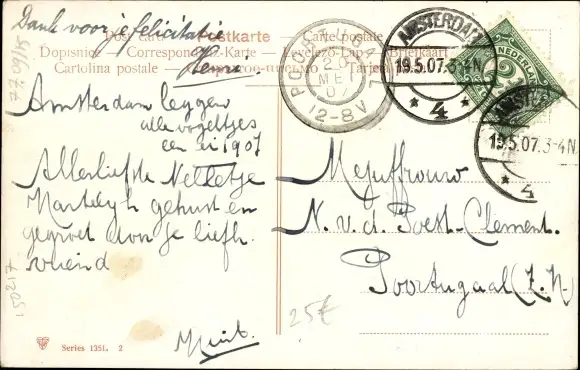 Dank voor je felicitatie
Henri.
Post card Postkarte Carte postale
Dopisnice — Correspondenz-Karte — Levelező-Lap — Briefkaart
Cartolina postale
Amsterdam leggen
alle vogeltjes
een ei 1907
Allerliefste Nelletje
Hartelijk gekust en
gegroet door je liefh.
vriend
12-8V
20
MEI
07
AMSTERDAM
19.5.07.3-4N
* 4 *
NEDERLAND
2½
19.5.07.3-4N
* 4
Mejuffrouw
N. v. d. Poest-Clement.
Poortugaal (Z. H.)
77.09/15
150217
25€
Series 1351. 2